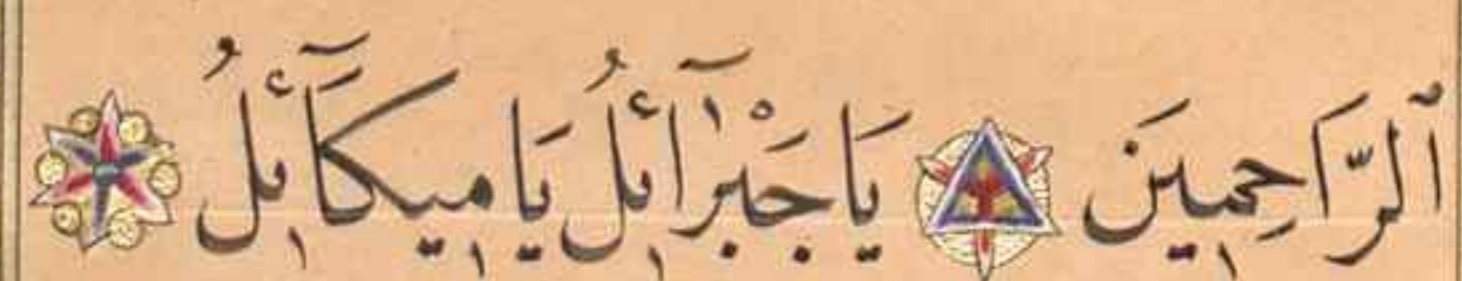 ٱلرَّاحِمِينَ يَا جَبْرَآئِلُ يَا مِيكَآئِلُ